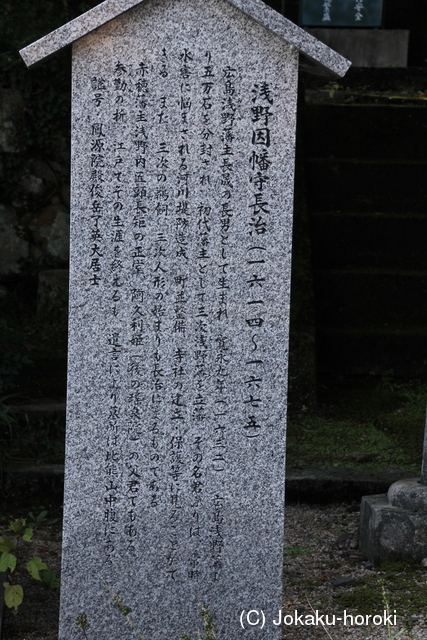 浅野因幡守長治（一六一四〜一六七五）
広島浅野藩主長晟の長男として生まれ 寛永九年（一六三二） 広島浅野藩よ
り五万石を分封され 初代藩主として三次浅野藩を立藩 その名君ぶりは
水害に悩まされる河川堤防造成 町並整備 寺社の建立 保護等に見ることがで
きる また 三次の鵜飼 三次人形の始まりも長治によるものである
赤穂藩主浅野内匠頭長矩の正室 阿久利姫 の父君でもある
参勤の折 江戸でその生涯を終えるも 遺言により墓所は此熊山中腹にある
諡号 鳳源院殿俊岳
大居士
(C) Jokaku-horoki